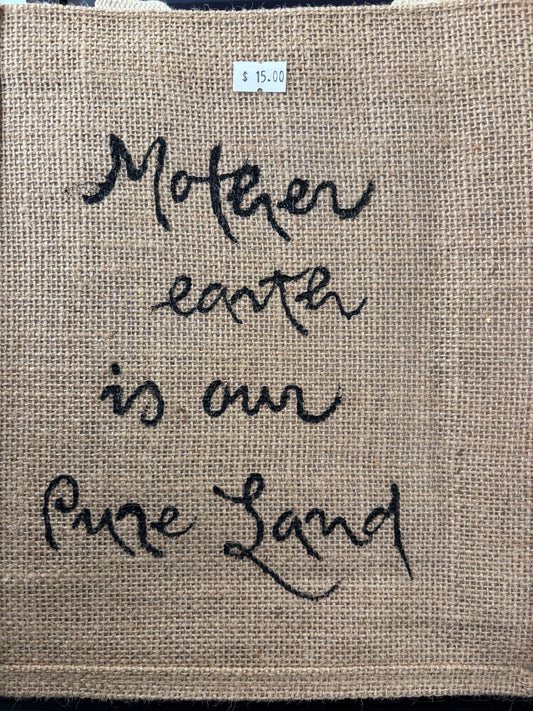 $ 15.00
Mother
earth
is our
Pure Land